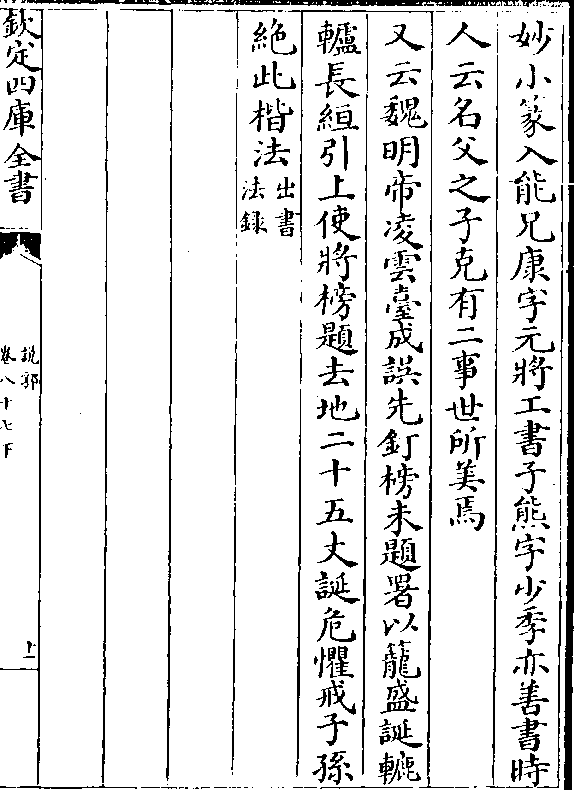 妙小篆入能兄康字元將工書子熊字少季亦善書時
人云名父之子克有二事世所美焉
又云魏明帝凌雲臺成誤先釘榜未題署以籠盛誕轆
轤長絙引上使將榜題去地二十五丈誕危懼戒子孫
絶此楷法出書
法録
欽定四庫全書
說郛
卷八十七下
十一